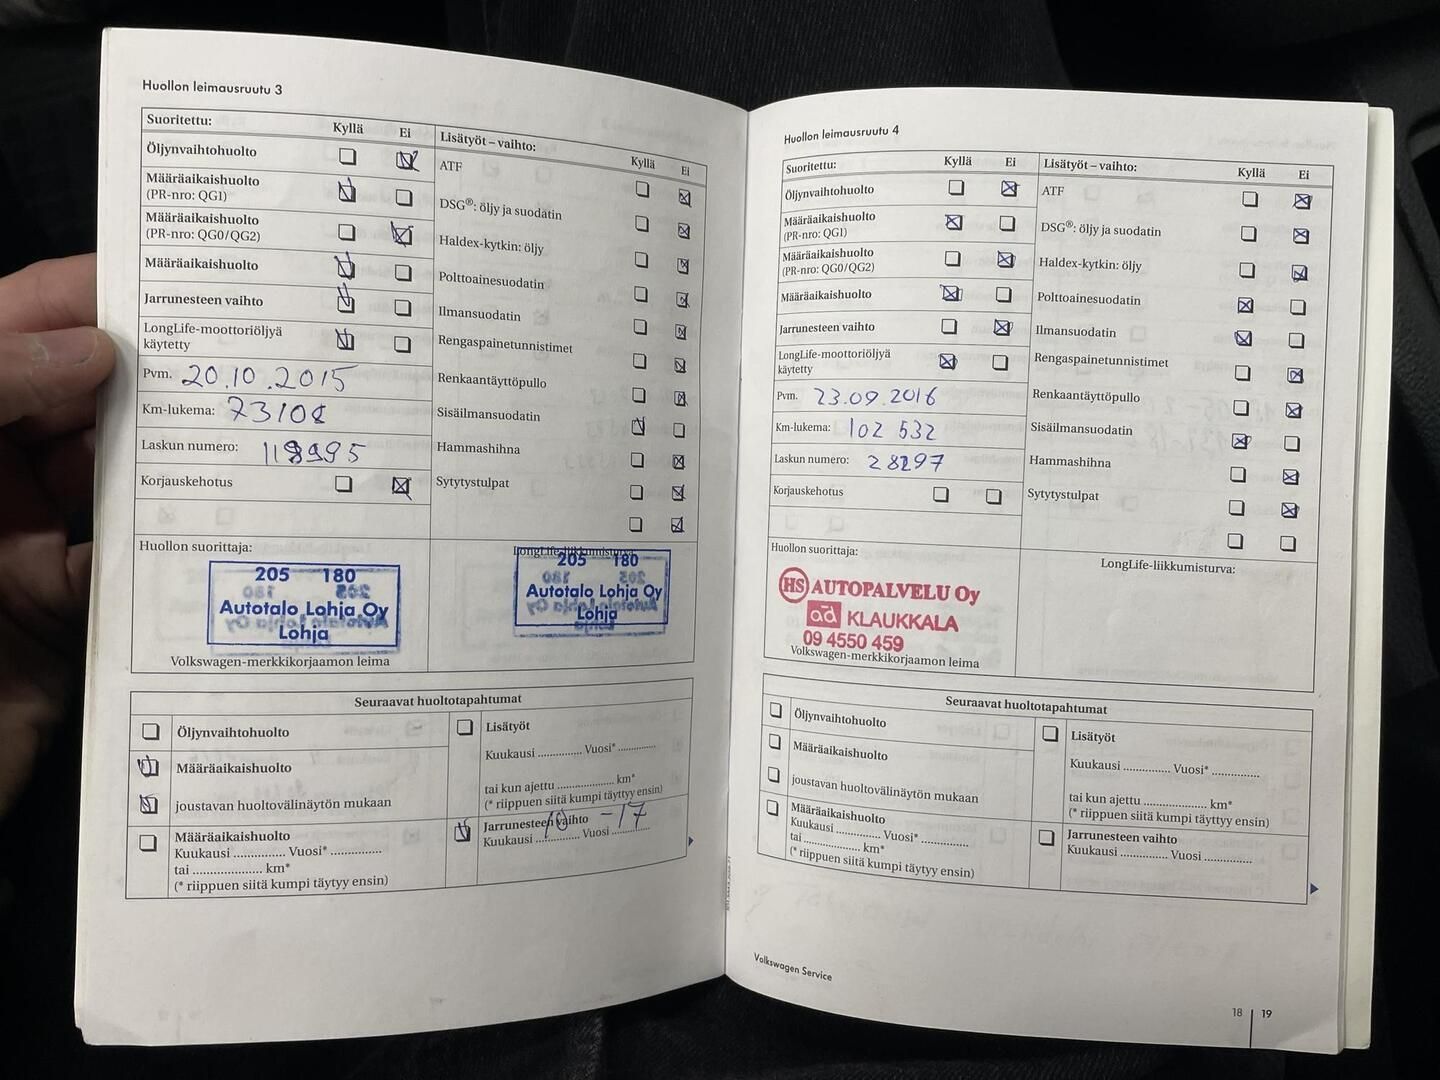 Huollon leimausruutu 3
Suoritettu: Kyllä Ei
Öljynvaihtohuolto
Määräaikaishuolto
(PR-nro: QG1)
Määräaikaishuolto
(PR-nro: QG0/QG2)
Määräaikaishuolto
Jarrunesteen vaihto
LongLife-moottoriöljyä
käytetty
Pvm. 20.10.2015
Km-lukema: 73108
Laskun numero: 118995
Korjauskehotus
Lisätyöt – vaihto: Kyllä Ei
ATF
DSG®: öljy ja suodatin
Haldex-kytkin: öljy
Polttoainesuodatin
Ilmansuodatin
Rengaspainetunnistimet
Renkaantäyttöpullo
Sisäilmansuodatin
Hammashihna
Sytytystulpat
Huollon suorittaja:
205 180
Autotalo Lohja Oy
Lohja
Volkswagen-merkkikorjaamon leima
LongLife-liikkumisturva:
205 180
Autotalo Lohja Oy
Lohja
Seuraavat huoltotapahtumat
Öljynvaihtohuolto
Määräaikaishuolto
joustavan huoltovälinäytön mukaan
Määräaikaishuolto
Kuukausi ............... Vuosi* ...............
tai .................... km*
(* riippuen siitä kumpi täytyy ensin)
Lisätyöt
Kuukausi ............. Vuosi* .............
tai kun ajettu ................. km*
(* riippuen siitä kumpi täyttyy ensin)
Jarrunesteen vaihto
Kuukausi ............. Vuosi .............
10 -17
Huollon leimausruutu 4
Suoritettu: Kyllä Ei
Öljynvaihtohuolto
Määräaikaishuolto
(PR-nro: QG1)
Määräaikaishuolto
(PR-nro: QG0/QG2)
Määräaikaishuolto
Jarrunesteen vaihto
LongLife-moottoriöljyä
käytetty
Pvm. 23.09.2016
Km-lukema: 102 532
Laskun numero: 28297
Korjauskehotus
Lisätyöt – vaihto: Kyllä Ei
ATF
DSG®: öljy ja suodatin
Haldex-kytkin: öljy
Polttoainesuodatin
Ilmansuodatin
Rengaspainetunnistimet
Renkaantäyttöpullo
Sisäilmansuodatin
Hammashihna
Sytytystulpat
Huollon suorittaja:
HS AUTOPALVELU Oy
ad KLAUKKALA
09 4550 459
Volkswagen-merkkikorjaamon leima
LongLife-liikkumisturva:
Seuraavat huoltotapahtumat
Öljynvaihtohuolto
Määräaikaishuolto
joustavan huoltovälinäytön mukaan
Määräaikaishuolto
Kuukausi ............. Vuosi* .............
tai .................... km*
(* riippuen siitä kumpi täytyy ensin)
Lisätyöt
Kuukausi ............. Vuosi* .............
tai kun ajettu .................. km*
(* riippuen siitä kumpi täyttyy ensin)
Jarrunesteen vaihto
Kuukausi ............. Vuosi .............
Volkswagen Service
18 19